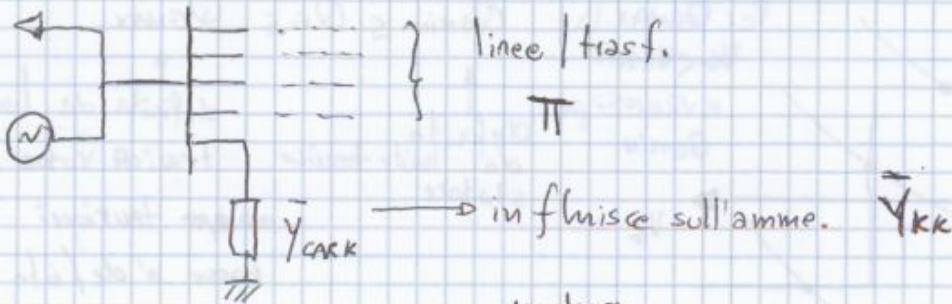 linee / trasf.
π
Ȳ_CARK → influisce sull'amme. Ȳ_KK